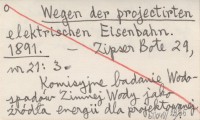 o Wegen der projectirten
elektrischen Eisenbahn.
1891. — Zipser Bote 29,
nr 21: 3.
Komisyjne badanie Wodo-
spadów Zimnej Wody jako
źródła energii dla projektowanej